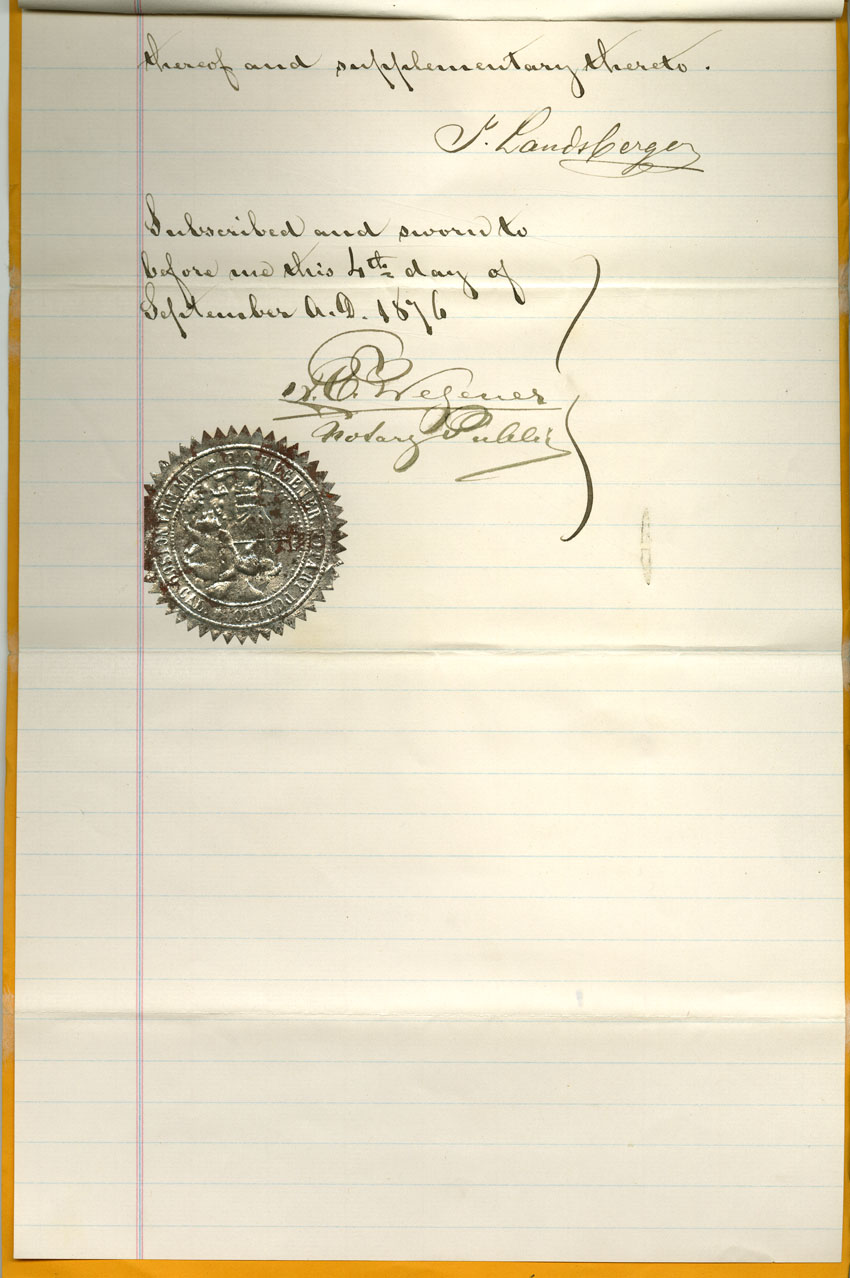 thereof and supplementary thereto.
I. Landsberger
Subscribed and sworn to
before me this 4th day of
September A.D. 1876
Wegener
Notary Public
WEGENER NOTARY PUBLIC
CAL.